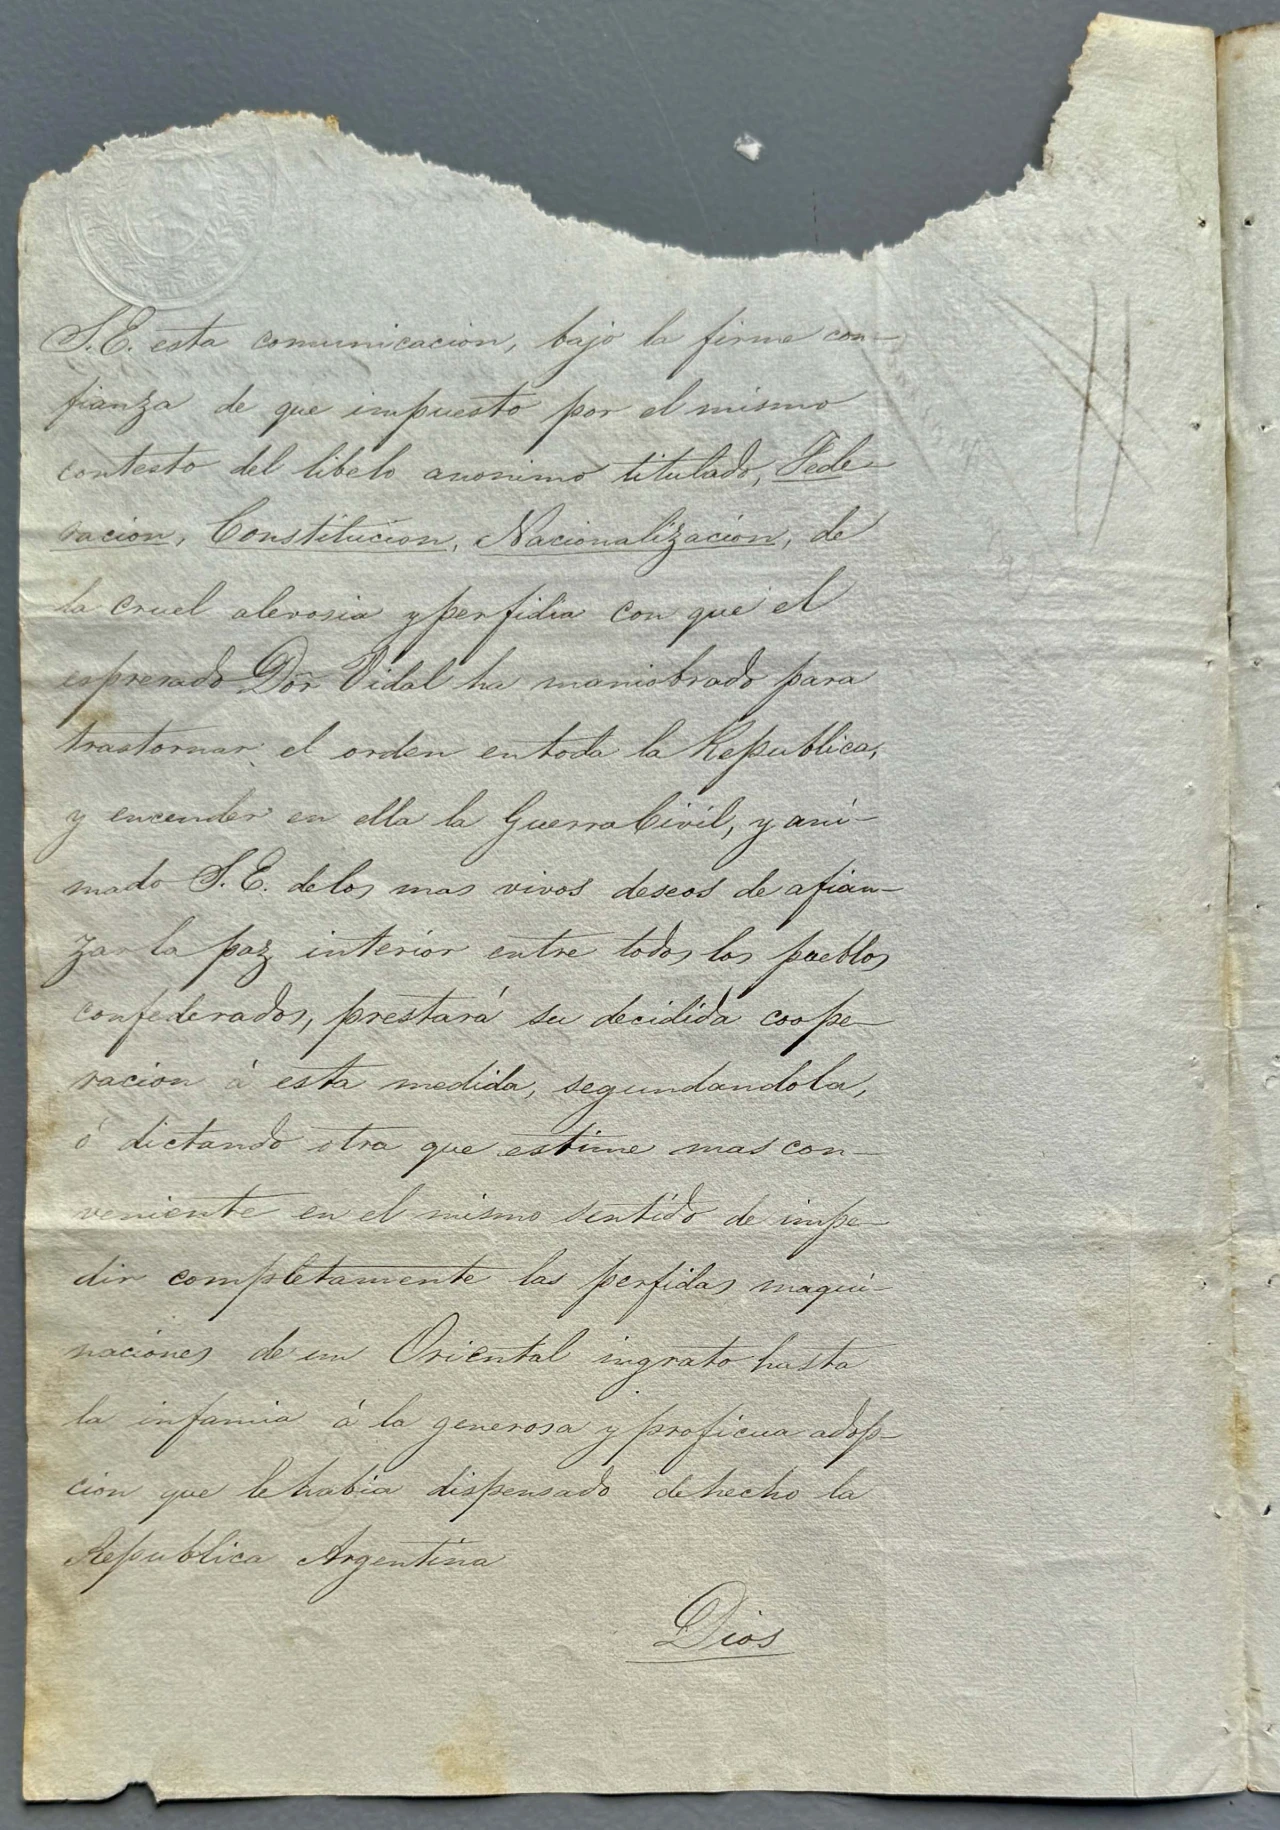 S.E. esta comunicacion, bajo la firme con-
fianza de que impuesto por el mismo
contesto del libelo anonimo titulado, Fede-
racion, Constitucion, Nacionalizacion, de
la cruel alevosia y perfidia con que el
espresado Dor Vidal ha maniobrado para
trastornar el orden en toda la Republica,
y encender en ella la Guerra Civil, y ani-
mado S.E. de los mas vivos deseos de afian-
zar la paz interior entre todos los pueblos
confederados, prestará su decidida coope-
racion á esta medida, segundandola,
ó dictando otra que estime mas con-
veniente en el mismo sentido de impe-
dir completamente las perfidas maqui-
naciones de un Oriental ingrato hasta
la infamia á la generosa y proficua adop-
cion que le habia dispensado de hecho la
Republica Argentina
Dios